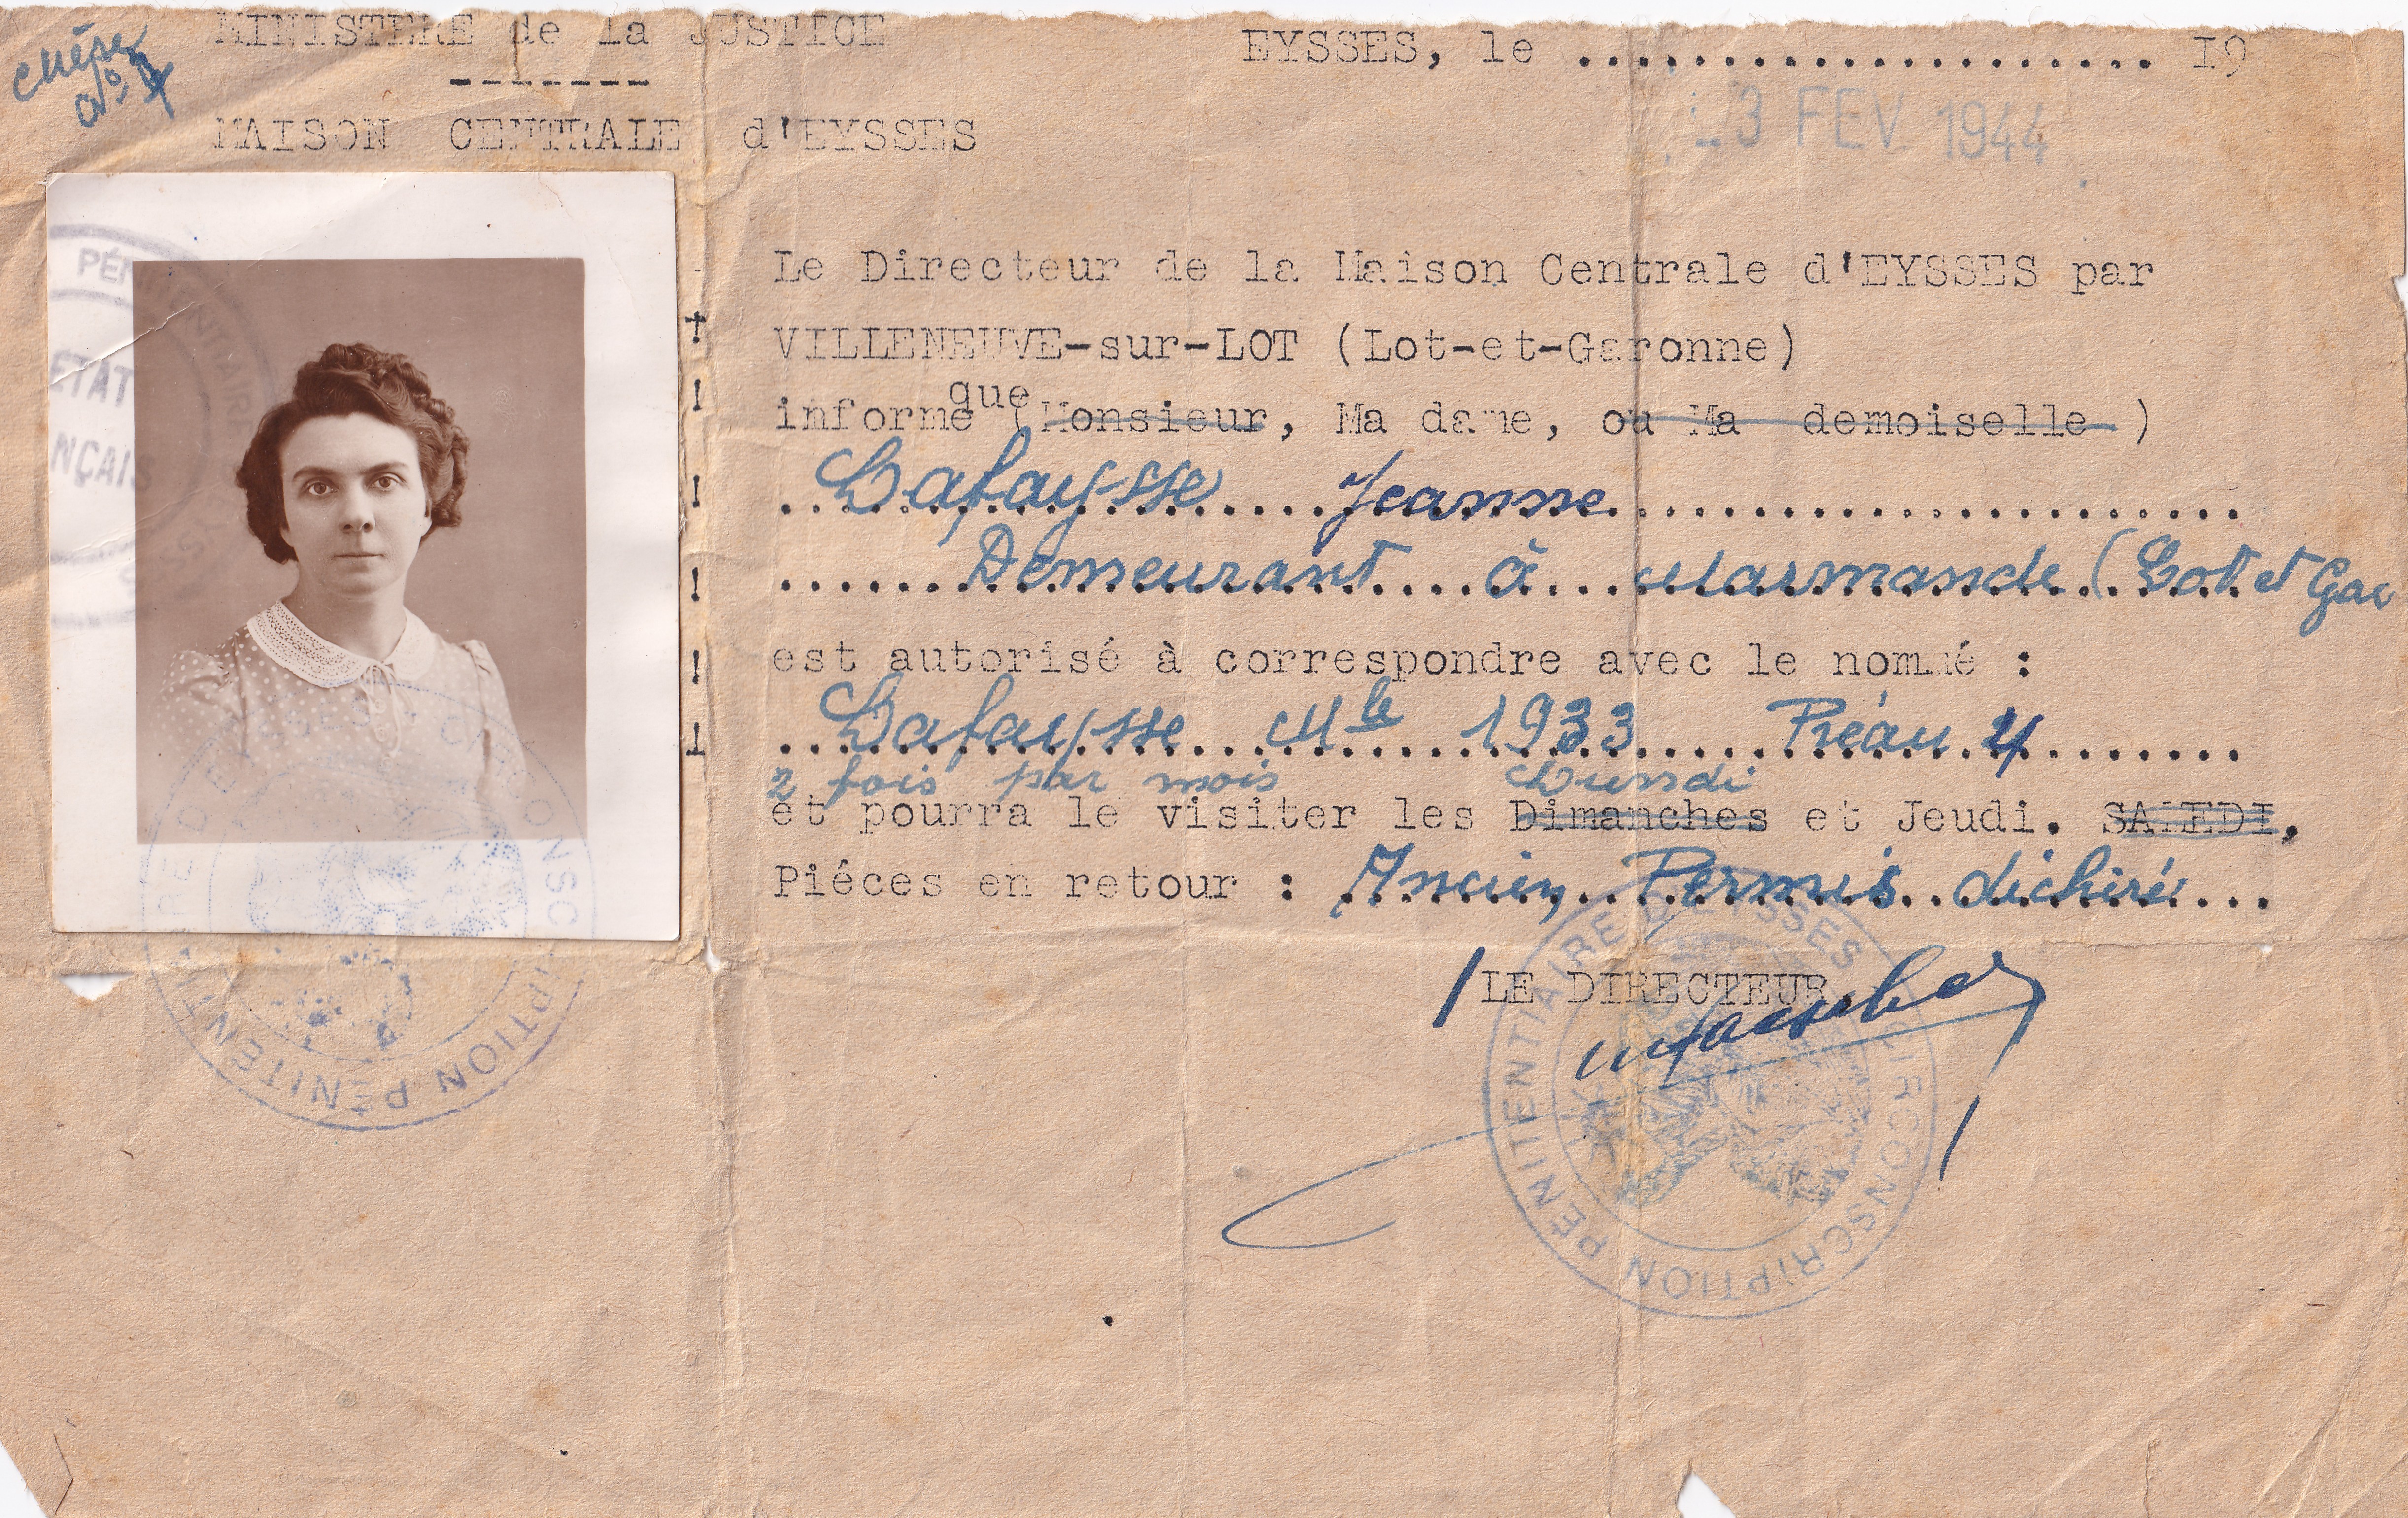 MINISTERE de la JUSTICE
-------
MAISON CENTRALE d'EYSSES
EYSSES, le .................... 19
3 FEV. 1944
N°
PÉNITENTIAIRE
ETAT
NÇAIS
Le Directeur de la Maison Centrale d'EYSSES par
VILLENEUVE-sur-LOT (Lot-et-Garonne)
informe que (Monsieur, Ma dame, ou Ma demoiselle )
Lafaysse Jeanne
Demeurant à Marmande (Lot et Gar
est autorisé à correspondre avec le nommé :
Lafaysse Mle 1933 Préau 4
2 fois par mois Lundi
et pourra le visiter les Dimanches et Jeudi. SAMEDI,
Piéces en retour : Ancien Permis déchiré
LE DIRECTEUR,
CIRCONSCRIPTION PÉNITENTIAIRE D'EYSSES
CIRCONSCRIPTION PÉNITENTIAIRE D'EYSSES